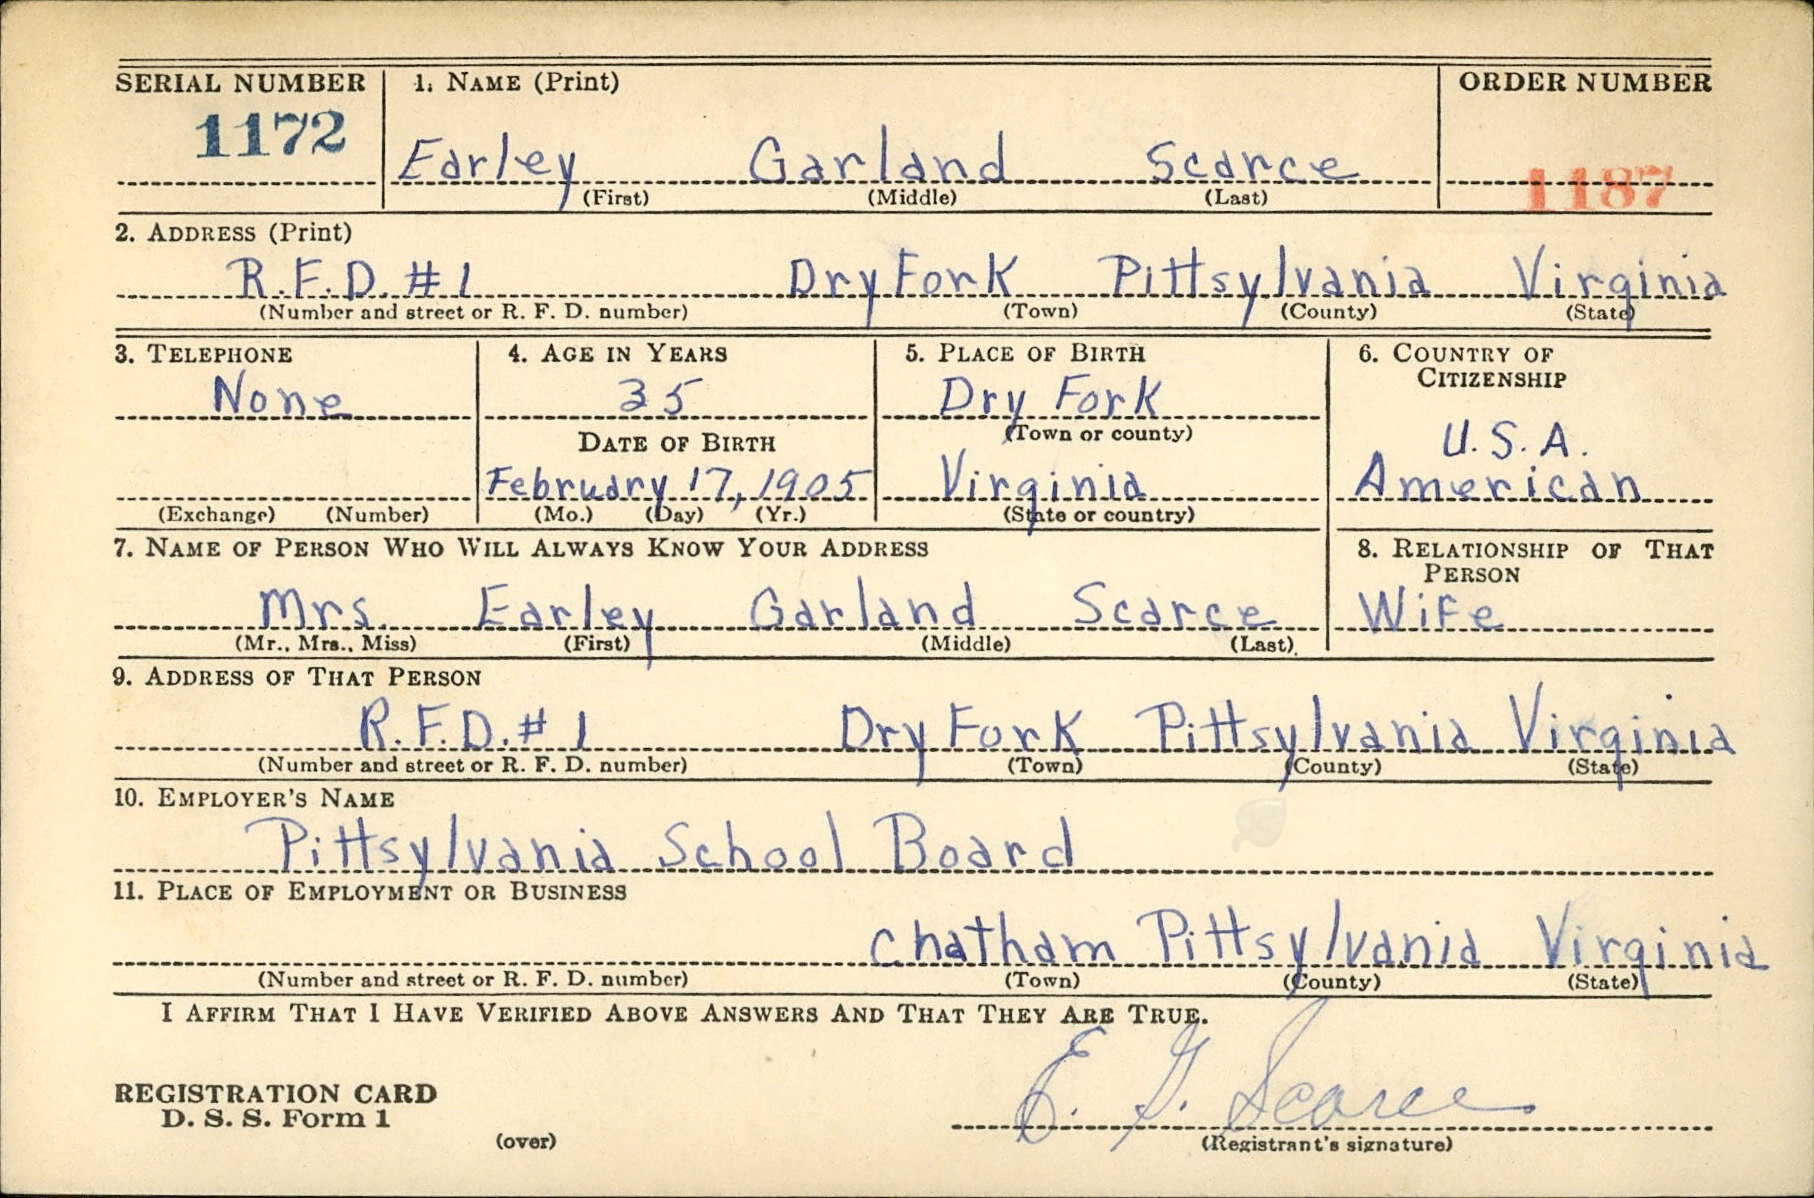 SERIAL NUMBER 1. NAME (Print) ORDER NUMBER
1172
Earley Garland Scarce 1187
(First) (Middle) (Last)
2. ADDRESS (Print)
R.F.D. #1 Dry Fork Pittsylvania Virginia
(Number and street or R. F. D. number) (Town) (County) (State)
3. TELEPHONE 4. AGE IN YEARS 5. PLACE OF BIRTH 6. COUNTRY OF CITIZENSHIP
None 35 Dry Fork
DATE OF BIRTH (Town or county) U.S.A.
February 17, 1905 Virginia American
(Exchange) (Number) (Mo.) (Day) (Yr.) (State or country)
7. NAME OF PERSON WHO WILL ALWAYS KNOW YOUR ADDRESS 8. RELATIONSHIP OF THAT PERSON
Mrs. Earley Garland Scarce Wife
(Mr., Mrs., Miss) (First) (Middle) (Last)
9. ADDRESS OF THAT PERSON
R.F.D. #1 Dry Fork Pittsylvania Virginia
(Number and street or R. F. D. number) (Town) (County) (State)
10. EMPLOYER'S NAME
Pittsylvania School Board
11. PLACE OF EMPLOYMENT OR BUSINESS
Chatham Pittsylvania Virginia
(Number and street or R. F. D. number) (Town) (County) (State)
I AFFIRM THAT I HAVE VERIFIED ABOVE ANSWERS AND THAT THEY ARE TRUE.
REGISTRATION CARD E. G. Scarce
D. S. S. Form 1
(over) (Registrant's signature)